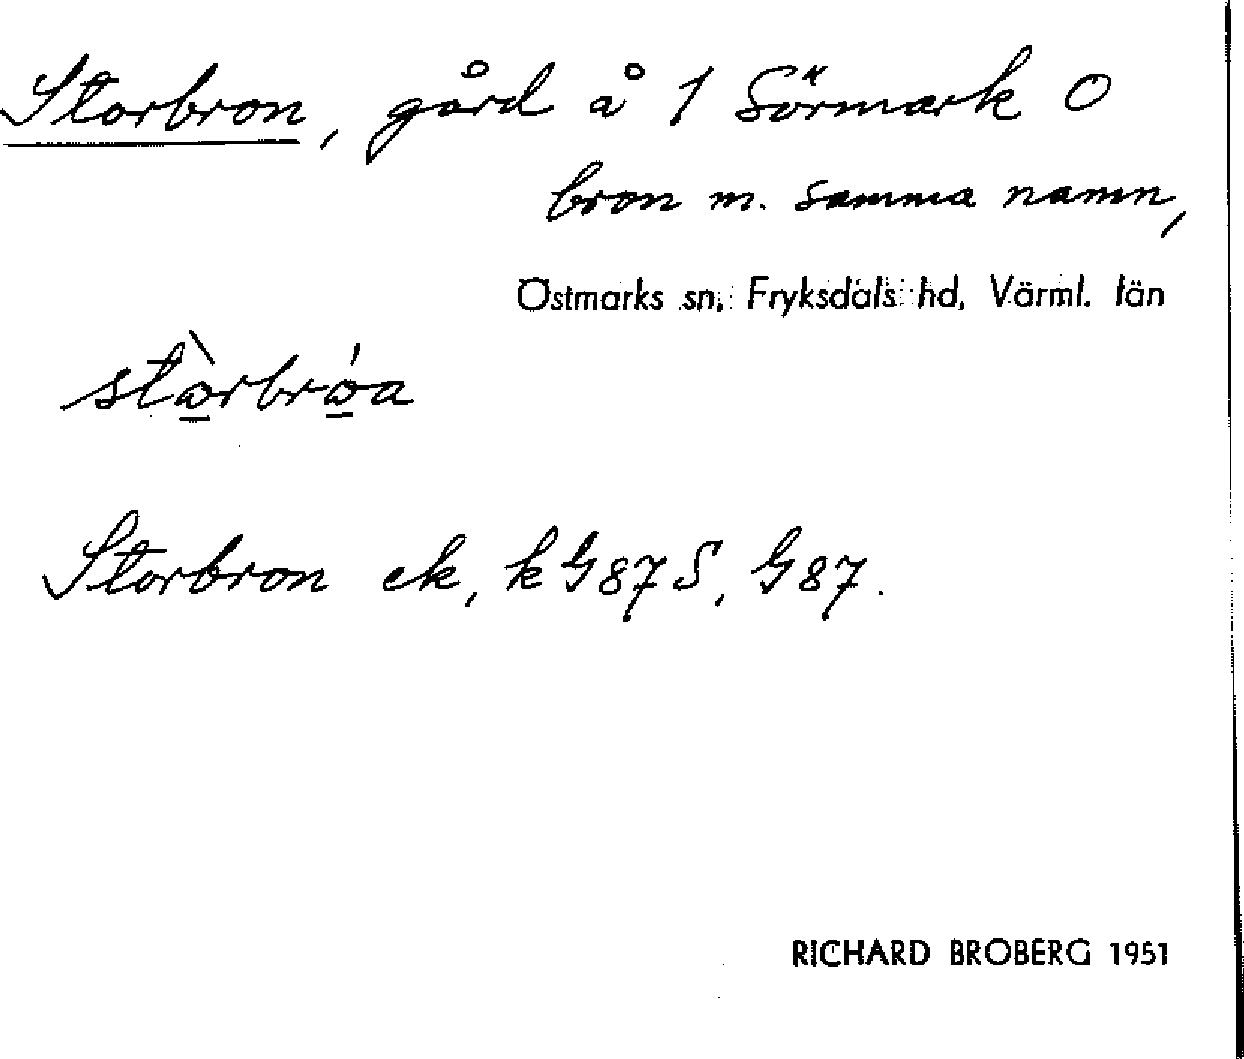 Storbron, gård å 1 Sörmark O
bron m. samma namn,
Östmarks sn, Fryksdals hd, Värml. län
stò̲rbró̲a
Storbron ek, k G87S, G87.
RICHARD BROBERG 1951